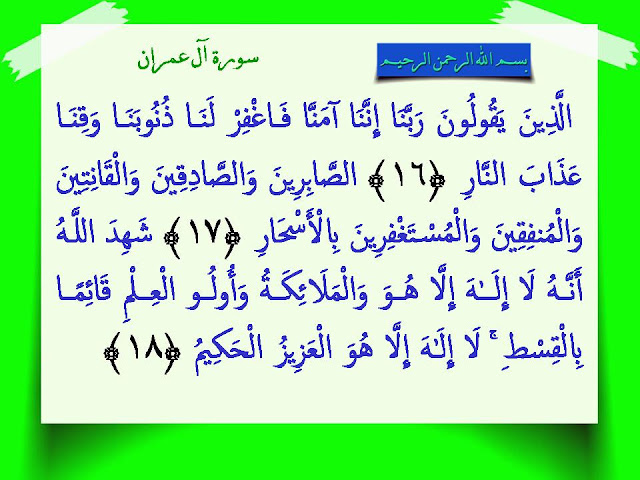 بسم الله الرحمن الرحيم
سورة آل عمران
الَّذِينَ يَقُولُونَ رَبَّنَا إِنَّنَا آمَنَّا فَاغْفِرْ لَنَا ذُنُوبَنَا وَقِنَا
عَذَابَ النَّارِ ﴿١٦﴾ الصَّابِرِينَ وَالصَّادِقِينَ وَالْقَانِتِينَ
وَالْمُنفِقِينَ وَالْمُسْتَغْفِرِينَ بِالْأَسْحَارِ ﴿١٧﴾ شَهِدَ اللَّهُ
أَنَّهُ لَا إِلَـٰهَ إِلَّا هُوَ وَالْمَلَائِكَةُ وَأُولُو الْعِلْمِ قَائِمًا
بِالْقِسْطِ ۚ لَا إِلَـٰهَ إِلَّا هُوَ الْعَزِيزُ الْحَكِيمُ ﴿١٨﴾